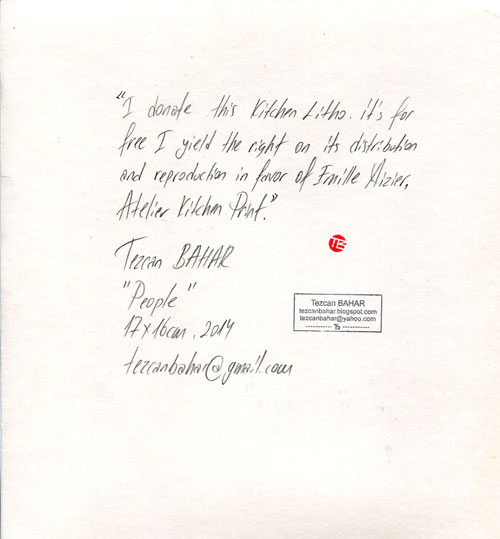 "I donate this Kitchen Litho. it's for
free I yield the right on its distribution
and reproduction in favor of Emille Aizier,
Atelier Kitchen Print."
TE
Tezcan BAHAR
"People"
17x16cm, 2014
tezcanbahar@gmail.com
Tezcan BAHAR
tezcanbahar.blogspot.com
tezcanbahar@yahoo.com